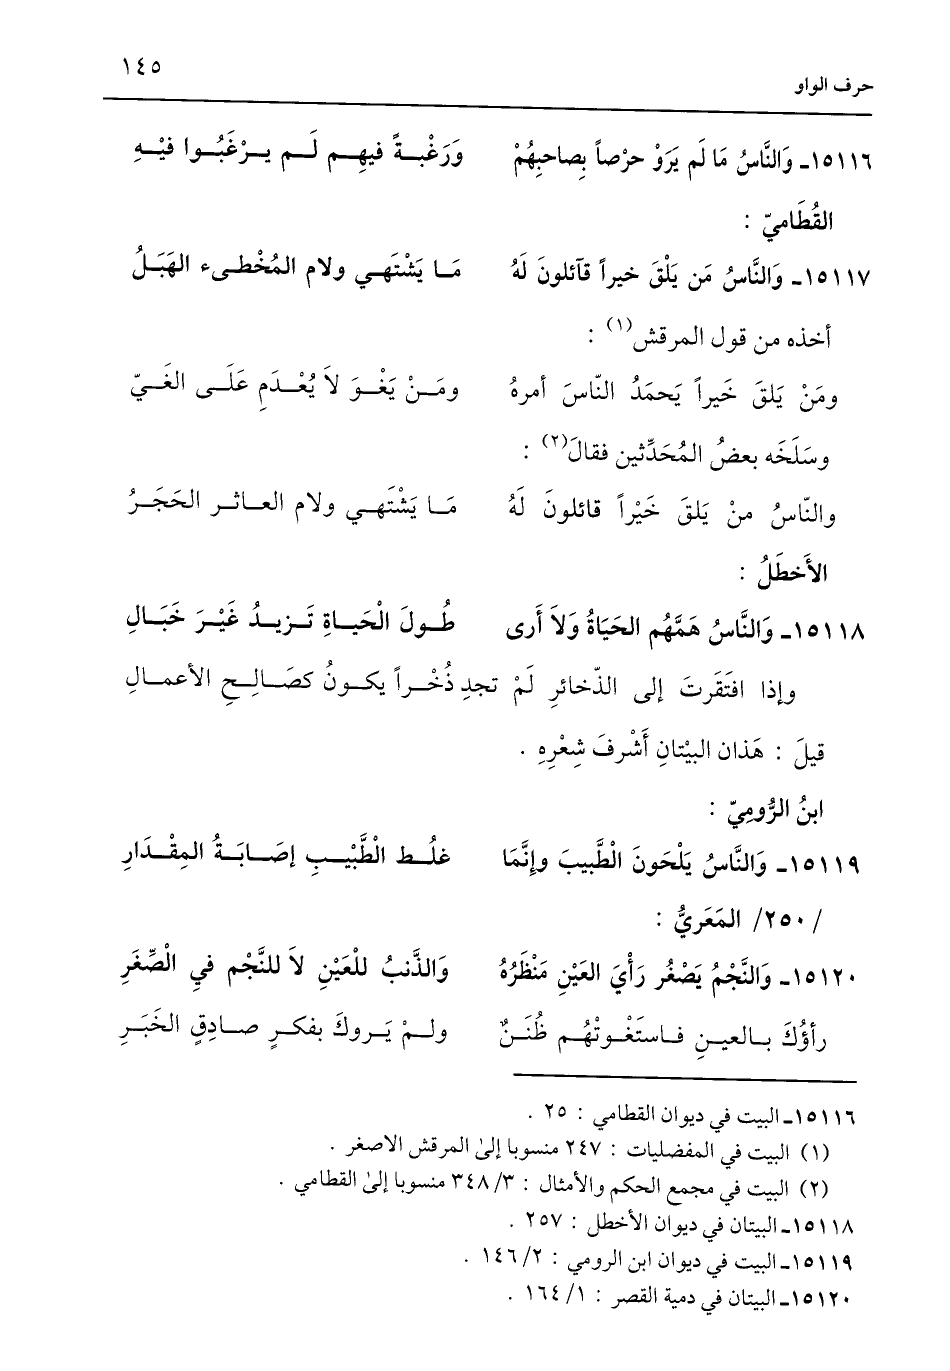 حرف الواو ١٤٥
١٥١١٦ـ وَالنَّاسُ مَا لَم يَرَوْ حرْصاً بِصاحبِهُمْ وَرَغْبـةً فيهِـم لَـم يـرْغَبُـوا فيْـهِ
القُطَاميّ :
١٥١١٧ـ وَالنَّاسُ مَن يَلْقَ خيراً قآئلونَ لَهُ مَـا يَشْتَهـي ولام المُخْطـىء الهَبَـلُ
أخذه من قول المرقش(١) :
ومَنْ يَلقَ خَيراً يَحمَدُ النّاسَ أمرهُ ومَـنْ يَغْـوَ لاَ يُعْـدَمِ عَلَـى الغَـيّ
وسَلَخَه بعضُ المُحَدِّثين فقالَ(٢) :
والنّاسُ منْ يَلقَ خَيْراً قائلونَ لَهُ مَـا يَشْتَهـي ولام العـاثـر الحَجَـرُ
الأَخطَلُ :
١٥١١٨ـ وَالنَّاسُ هَمَّهُم الحَيَاةُ وَلاَ أَرى طُـولَ الْحَيـاةِ تَـزيـدُ غَيْـرَ خَبَـالِ
وإذا افتَقَرتَ إلى الذّخائرِ لَمْ تجدِ ذُخْـراً يكـونُ كصَـالِـحِ الأعمـالِ
قيلَ : هَذان البيْتانِ أَشْرفَ شِعْرِهِ .
ابنُ الرُّومِيّ :
١٥١١٩ـ وَالنَّاسُ يَلْحَونَ الْطَّبيبَ وإنَّمَا غلُـط الْطَّبْيـبِ إصَـابَـةُ المِقْـدَارِ
/٢٥٠/ المَعَريُّ :
١٥١٢٠ـ وَالنَّجْمُ يَصْغُر رَأْيَ العَيْنِ مَنْظَرُهُ وَالذَّنبُ للْعَيْنِ لاَ للنَّجْم في الْصِّغَرِ
رأؤكَ بـالعيـنِ فـاستَغْـوتْهُـم ظُنَـنٌ ولـمْ يَـروكَ بفكـرٍ صـادِقٍ الخَبَـرِ
١٥١١٦ـ البيت في ديوان القطامي : ٢٥ .
(١) البيت في المفضليات : ٢٤٧ منسوبا إلىٰ المرقش الاصغر .
(٢) البيت في مجمع الحكم والأمثال : ٣٤٨/٣ منسوبا إلىٰ القطامي .
١٥١١٨ـ البيتان في ديوان الأخطل : ٢٥٧ .
١٥١١٩ـ البيت في ديوان ابن الرومي : ١٤٦/٢ .
١٥١٢٠ـ البيتان في دمية القصر : ١٦٤/١ .